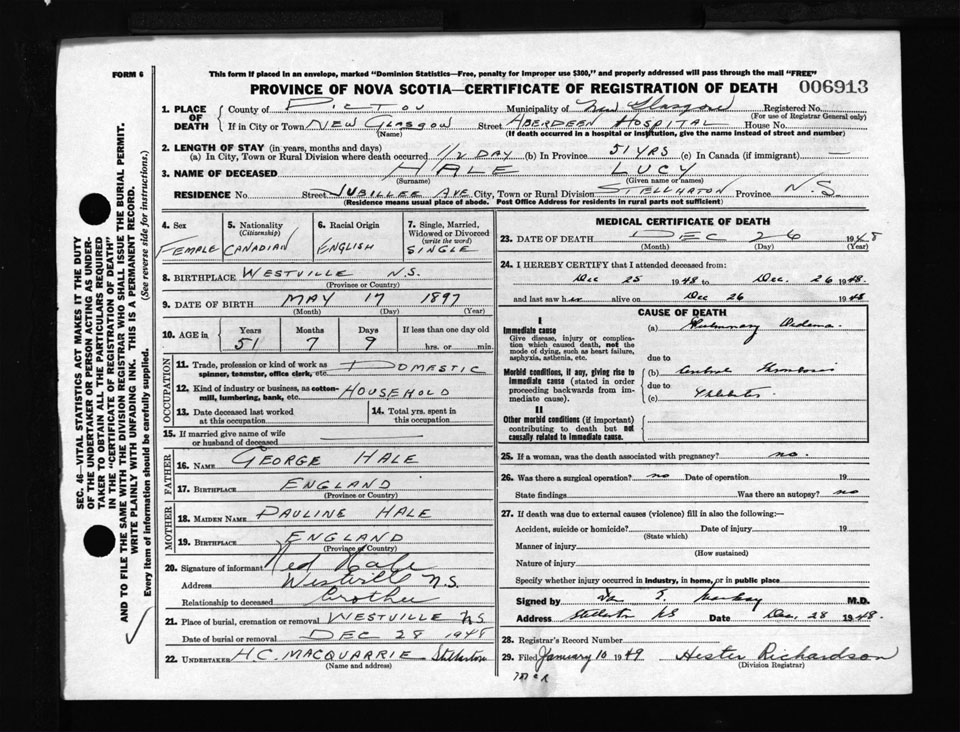 FORM 6
This form if placed in an envelope, marked "Dominion Statistics—Free, penalty for improper use $300," and properly addressed will pass through the mail "FREE"
PROVINCE OF NOVA SCOTIA—CERTIFICATE OF REGISTRATION OF DEATH 006913
1. PLACE OF DEATH County of PICTOU Municipality of New Glasgow Registered No.
(For use of Registrar General only)
If in City or Town NEW GLASGOW Street ABERDEEN HOSPITAL House No.
(Name) (If death occurred in a hospital or institution, give the name instead of street and number)
2. LENGTH OF STAY (in years, months and days)
(a) In City, Town or Rural Division where death occurred 1/2 DAY (b) In Province 51 YRS (c) In Canada (if immigrant) —
3. NAME OF DECEASED HALE LUCY
(Surname) (Given name or names)
RESIDENCE No. Street JUBILLEE AVE City, Town or Rural Division STELLHATON Province N.S
(Residence means usual place of abode. Post Office Address for residents in rural parts not sufficient)
4. Sex
FEMALE
5. Nationality
(Citizenship)
CANADIAN
6. Racial Origin
ENGLISH
7. Single, Married, Widowed or Divorced
(write the word)
SINGLE
8. BIRTHPLACE WESTVILLE N.S.
(Province or Country)
9. DATE OF BIRTH MAY 17 1897
(Month) (Day) (Year)
10. AGE in Years Months Days If less than one day old
51 7 9 hrs. or min.
OCCUPATION
11. Trade, profession or kind of work as
spinner, teamster, office clerk, etc. DOMESTIC
12. Kind of industry or business, as cotton-
mill, lumbering, bank, etc. HOUSEHOLD
13. Date deceased last worked
at this occupation
14. Total yrs. spent in
this occupation
15. If married give name of wife
or husband of deceased —
FATHER
16. NAME GEORGE HALE
17. BIRTHPLACE ENGLAND
(Province or Country)
MOTHER
18. MAIDEN NAME PAULINE HALE
19. BIRTHPLACE ENGLAND
(Province of Country)
20. Signature of informant Ned Hale
Address Westville N.S.
Relationship to deceased brother
21. Place of burial, cremation or removal WESTVILLE NS
Date of burial or removal DEC 28 1948
22. UNDERTAKER H.C. MACQUARRIE Stellarton
(Name and address)
MEDICAL CERTIFICATE OF DEATH
23. DATE OF DEATH DEC 26 1948
(Month) (Day) (Year)
24. I HEREBY CERTIFY that I attended deceased from:
Dec 25 1948 to Dec. 26 1948.
and last saw her alive on Dec 26 1948
CAUSE OF DEATH
I
Immediate cause (a) Pulmonary Oedema.
Give disease, injury or complica-
tion which caused death, not the
mode of dying, such as heart failure,
asphyxia, asthenia, etc. due to
Morbid conditions, if any, giving rise to (b) Cerebral Thrombosis
immediate cause (stated in order due to
proceeding backwards from im-
mediate cause). (c)
II
Other morbid conditions (if important)
contributing to death but not
causally related to immediate cause.
25. If a woman, was the death associated with pregnancy? no.
26. Was there a surgical operation? no Date of operation 19
State findings Was there an autopsy? no
27. If death was due to external causes (violence) fill in also the following:—
Accident, suicide or homicide? Date of injury 19
(State which)
Manner of injury
(How sustained)
Nature of injury
Specify whether injury occurred in industry, in home, or in public place
Signed by M.D.
Address Stellarton NS Date Dec. 28 1948.
28. Registrar's Record Number
29. Filed January 10 1949 Hester Richardson
(Division Registrar)
SEC. 46—VITAL STATISTICS ACT MAKES IT THE DUTY
OF THE UNDERTAKER OR PERSON ACTING AS UNDER-
TAKER TO OBTAIN ALL THE PARTICULARS REQUIRED
IN THE "CERTIFICATE OF REGISTRATION OF DEATH"
AND TO FILE THE SAME WITH THE DIVISION REGISTRAR WHO SHALL ISSUE THE BURIAL PERMIT.
WRITE PLAINLY WITH UNFADING INK. THIS IS A PERMANENT RECORD.
Every item of information should be carefully supplied. (See reverse side for instructions.)